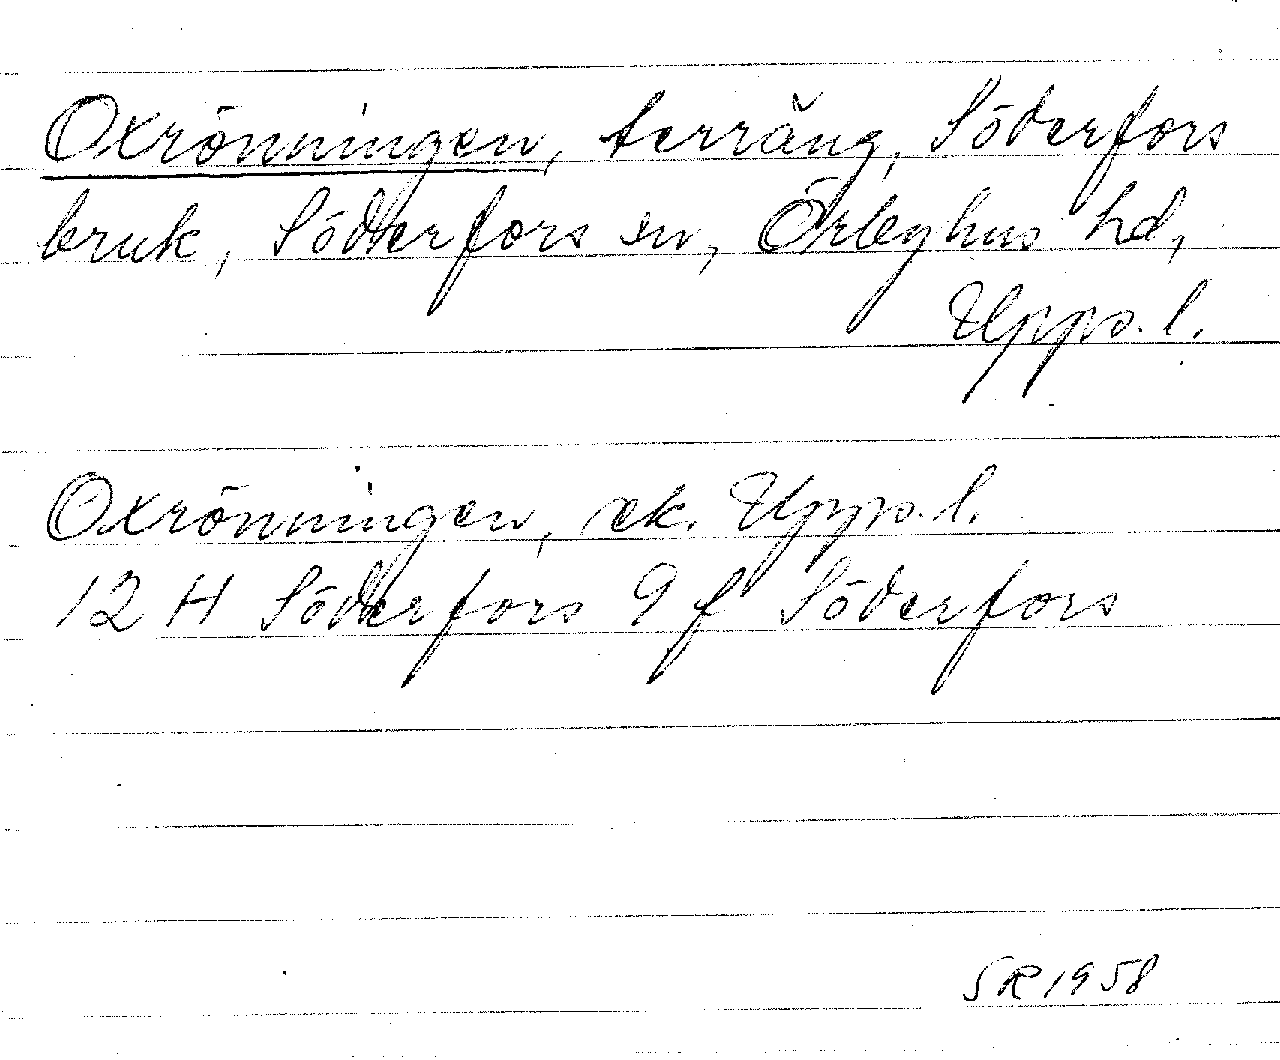 Oxrönningen, terräng, Söderfors
bruk, Söderfors sn, Örbyhus hd,
Upps. l.
Oxrönningen, ek. Upps. l.
12 H Söderfors 9 f Söderfors
SR 1958